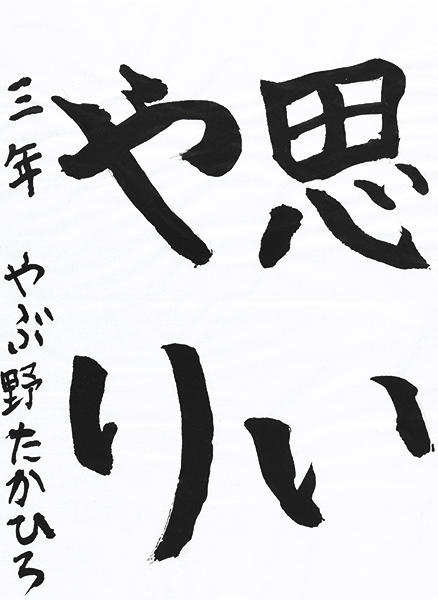 思い
やり
三年 やぶ野たかひろ